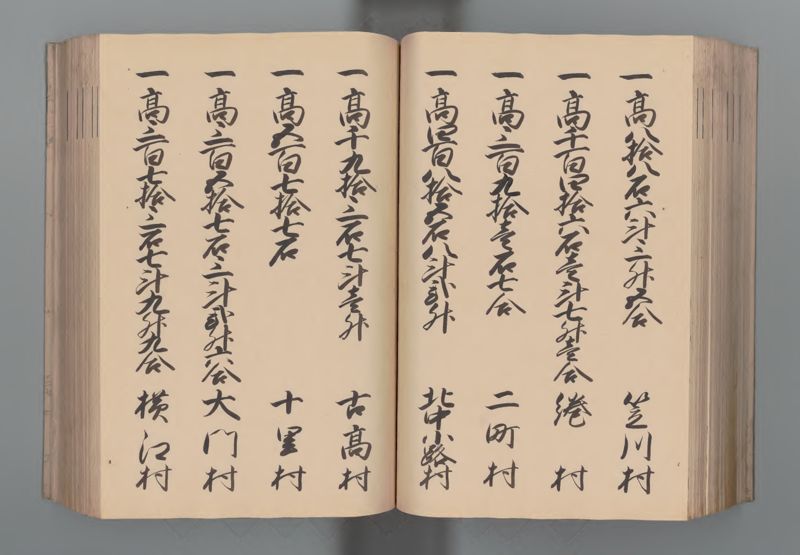 一高八拾八石六斗三升五合 笠川村
一高千百四拾六石壱斗七升壱合 綣村
一高三百九拾壱石七合 二町村
一高四百八拾五石八斗弐升 北中小路村
一高千九拾三石七斗壱升 古高村
一高五百七拾七石 十里村
一高三百五拾七石三斗弐升六合 大門村
一高三百七拾三石七斗九升九合 横江村